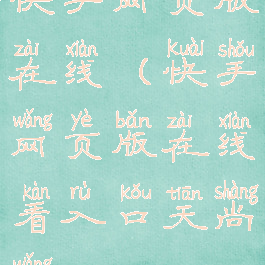 快手网页版
zài xiàn kuài shǒu
在线（快手
wǎng yè bǎn zài xiàn
网页版在线
kàn rù kǒu tiān shàng
看入口天尚
wǎng